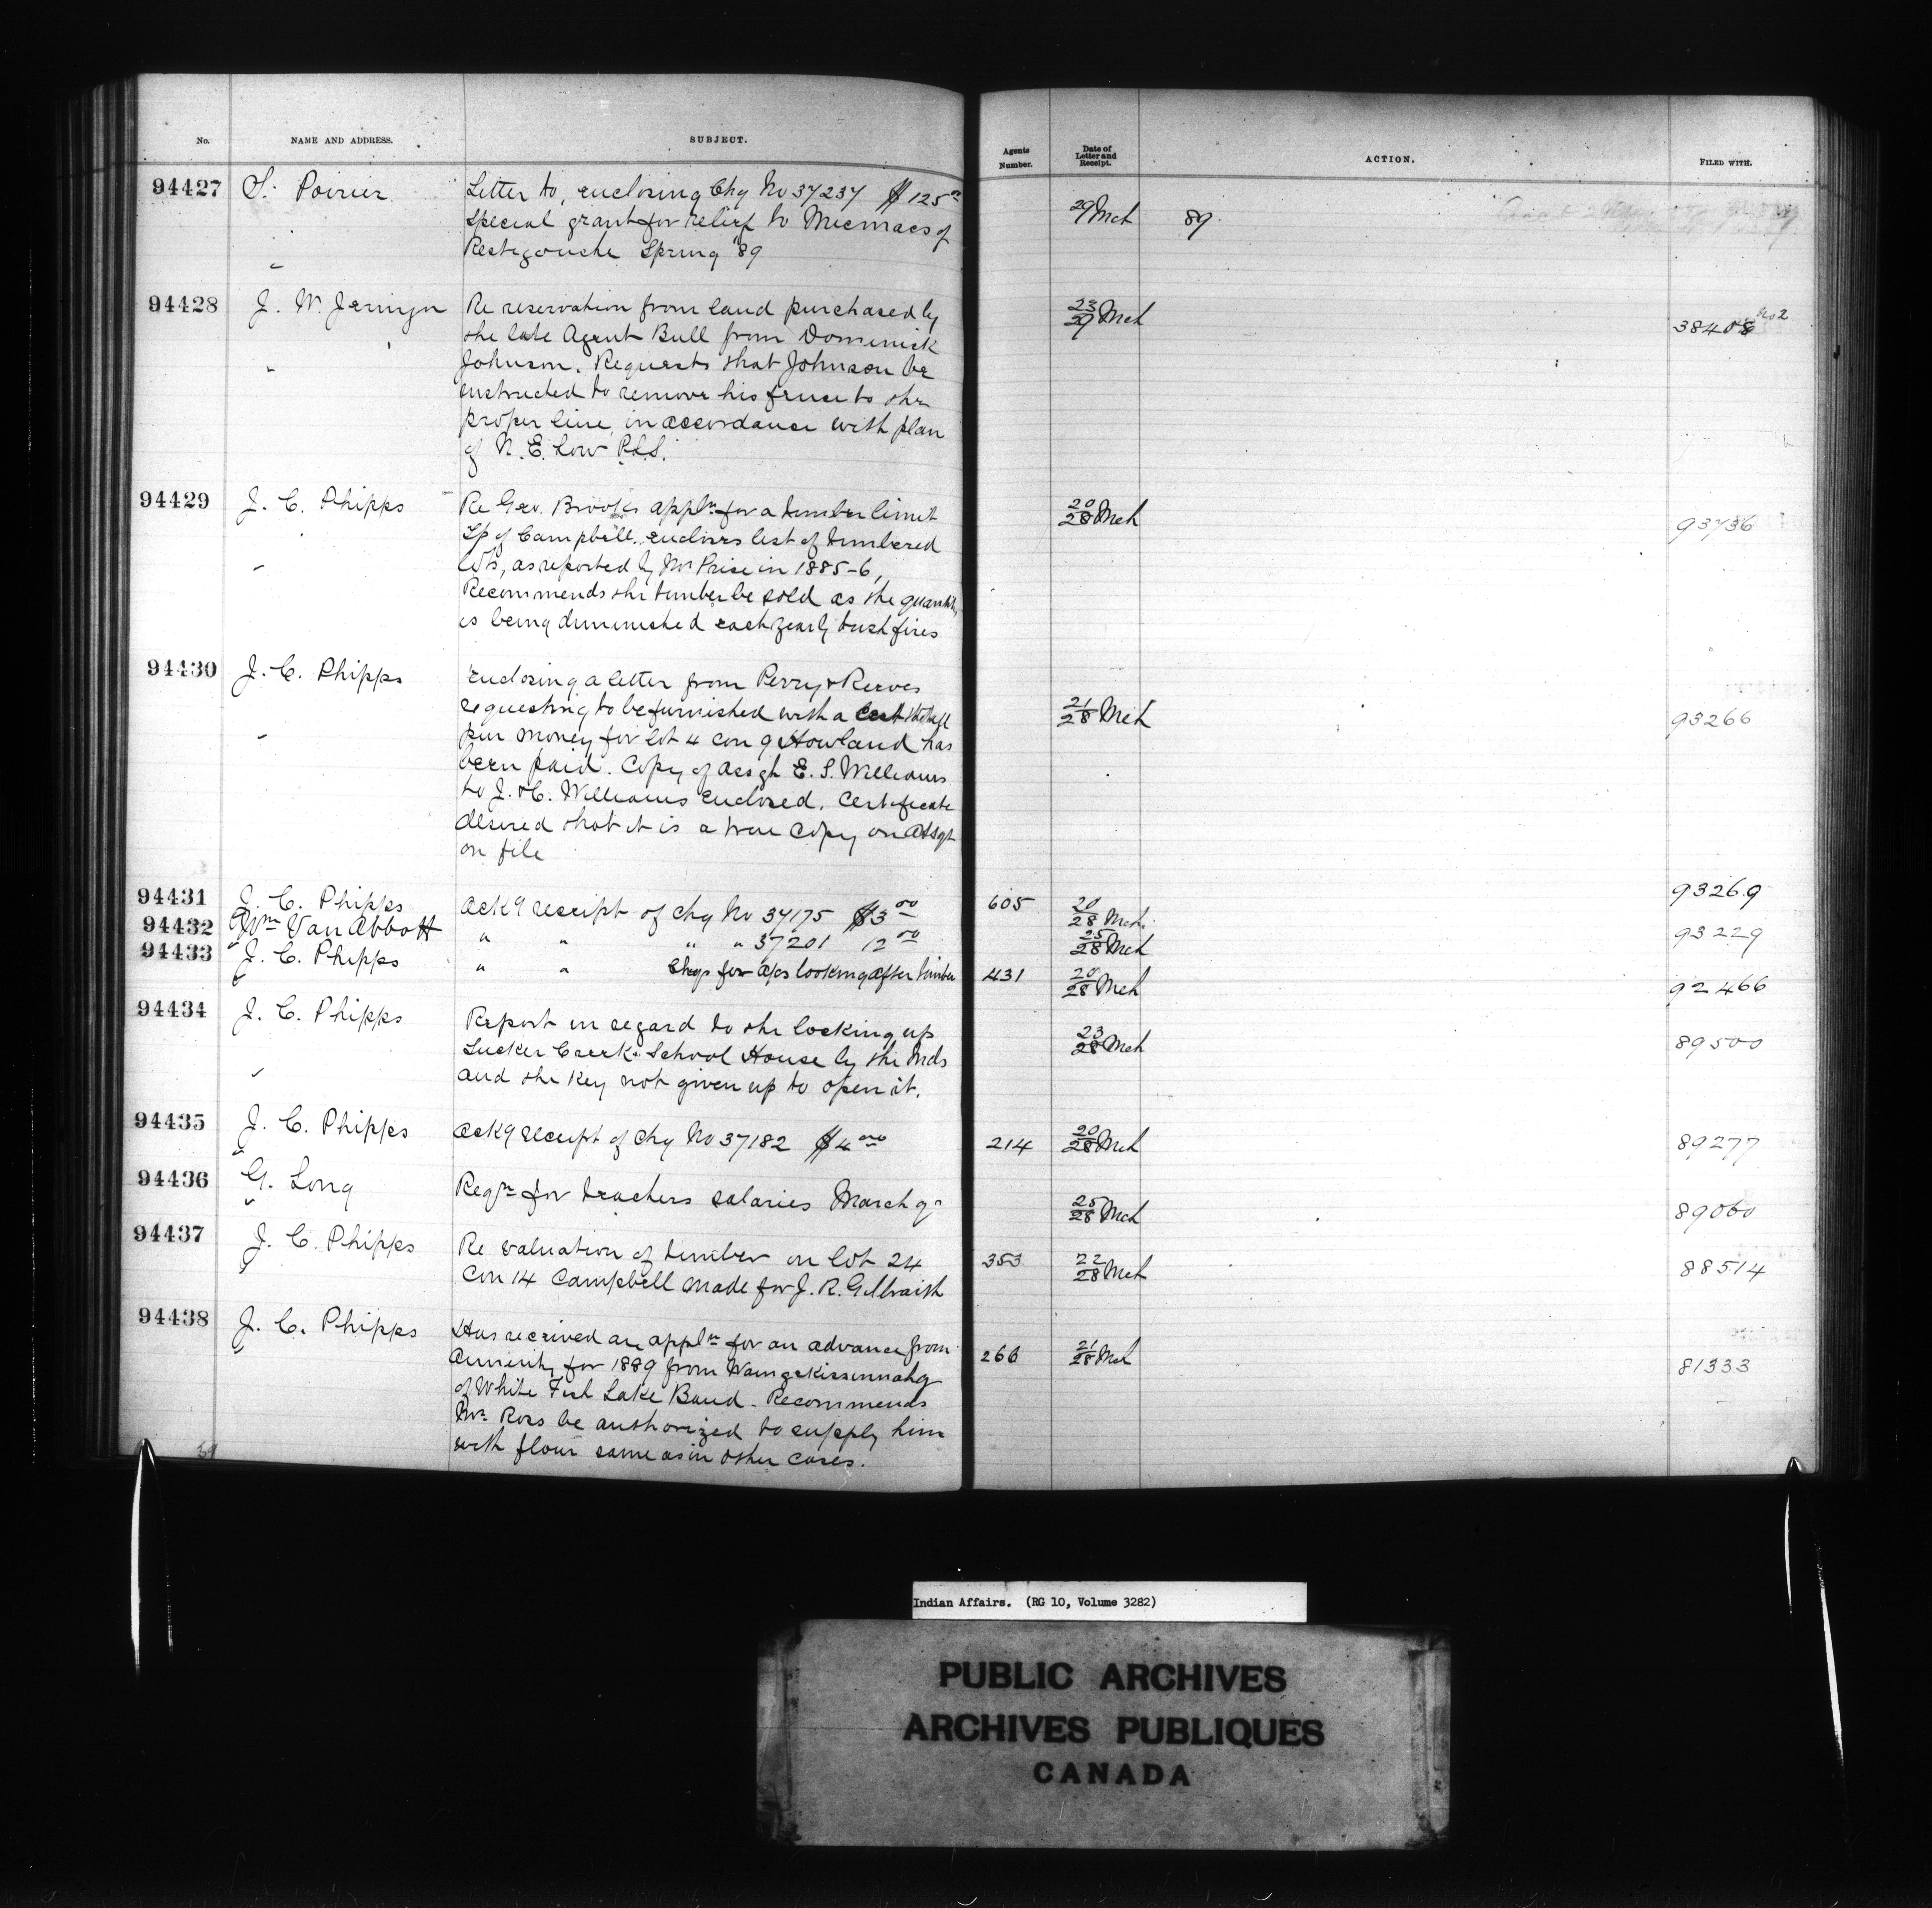 No. NAME AND ADDRESS. SUBJECT. Agents Number. Date of Letter and Receipt. ACTION. FILED WITH.
94427 S. Poirier Letter to, enclosing Chq No 37237 $125 00 29 Mch 89
special grant for relief to Micmacs of
Restigouche Spring 89
94428 J. W. Jermyn Re reservation from land purchased by 23/29 Mch 38408 No 2
the late Agent Bull from Dominick
Johnson. Requests that Johnson be
instructed to remove his fence to the
proper line, in accordance with plan
of N. E. Low P.L.S.
94429 J. C. Phipps Re Geo. Brooks appln for a timber limit 20/28 Mch 93736
Tp of Campbell. encloses list of timbered
lots, as reported by Mr Price in 1885-6,
Recommends the timber be sold as the quantity
is being diminished each year by bush fires
94430 J. C. Phipps Enclosing a letter from Perry & Reeves 21/28 Mch 93266
requesting to be furnished with a cert that full
pur money for lot 4 con 9 Howland has
been paid. Copy of assgt E. S. Williams
to J. H. Williams enclosed. Certificate
desired that it is a true copy on assgt
on file
94431 J. C. Phipps Ack g receipt of chq No 37175 $3 00 605 20/28 Mch 93269
94432 Wm Van Abbott " " " " 37201 12 00 25/28 Mch 93229
94433 J. C. Phipps " " Chqs for a/cs looking after timber 431 20/28 Mch 92466
94434 J. C. Phipps Report in regard to the locking up 23/28 Mch 89500
Sucker Creek School House by the Inds
and the key not given up to open it.
94435 J. C. Phipps Ack g receipt of Chq No 37182 $4 00 214 20/28 Mch 89277
94436 G. Long Reqn for teachers salaries March qr 25/28 Mch 89060
94437 J. C. Phipps Re valuation of timber on lot 24 353 22/28 Mch 88514
Con 14 Campbell made for J. R. Gilbraith
94438 J. C. Phipps Has received an appln for an advance from 266 21/28 Mch 81333
annuity for 1889 from
of White Fish Lake Band. Recommends
Mr. Ross be authorized to supply him
with flour same as in other cases.
Indian Affairs. (RG 10, Volume 3282)
PUBLIC ARCHIVES
ARCHIVES PUBLIQUES
CANADA